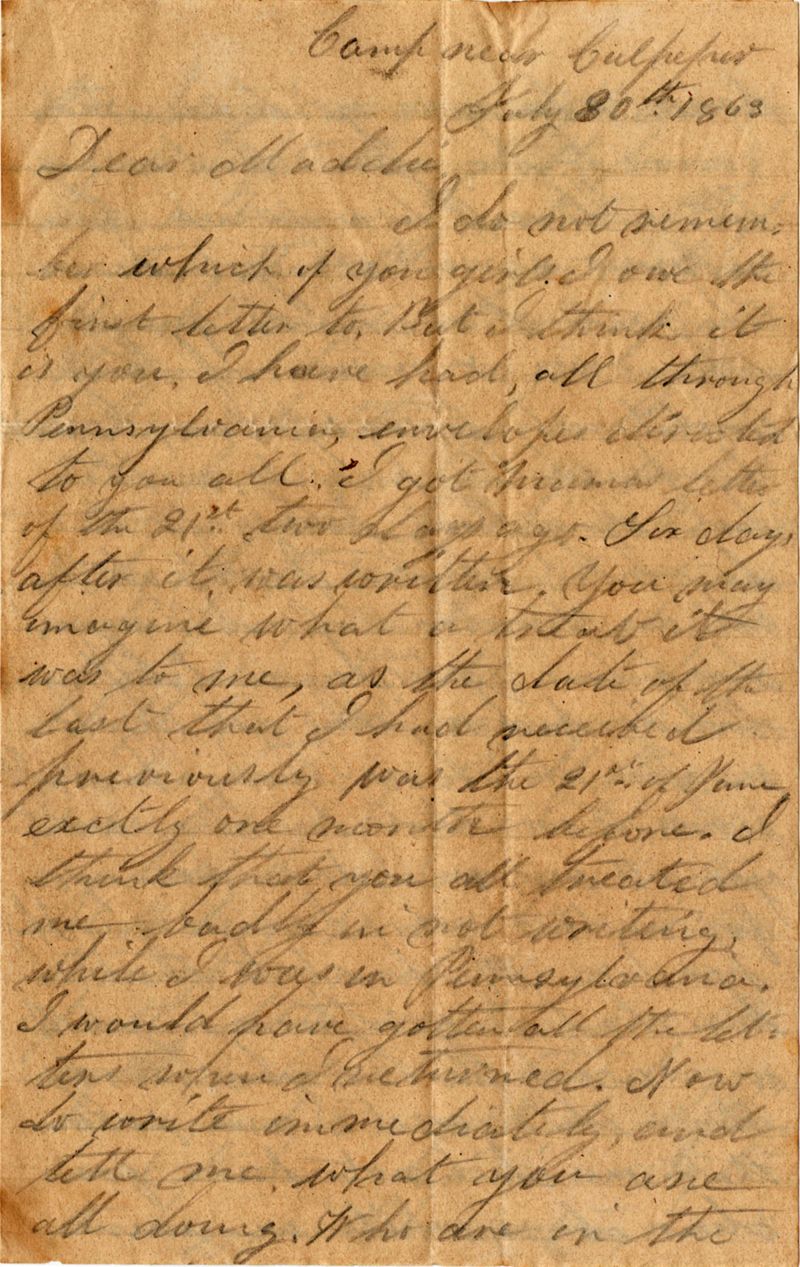 Camp near Culpeper
July 30th 1863
Dear Maddie,
I do not remem-
ber which of you girls I owe the
first letter to, But I think it
is you. I have had, all through
Pennsylvania, envelopes directed
to you all. I got letter
of the 21st two days ago. Six days
after it was written. You may
imagine what a treat it
was to me, as the date of the
last that I had received
previously was the 21st of June,
exctly one month before. I
think that you all treated
me badly in not writing,
while I was in Pennsylvania.
I would have gotten all the let-
ters when I returned. Now
do write immediately, and
tell me what you are
all doing. Who are in the